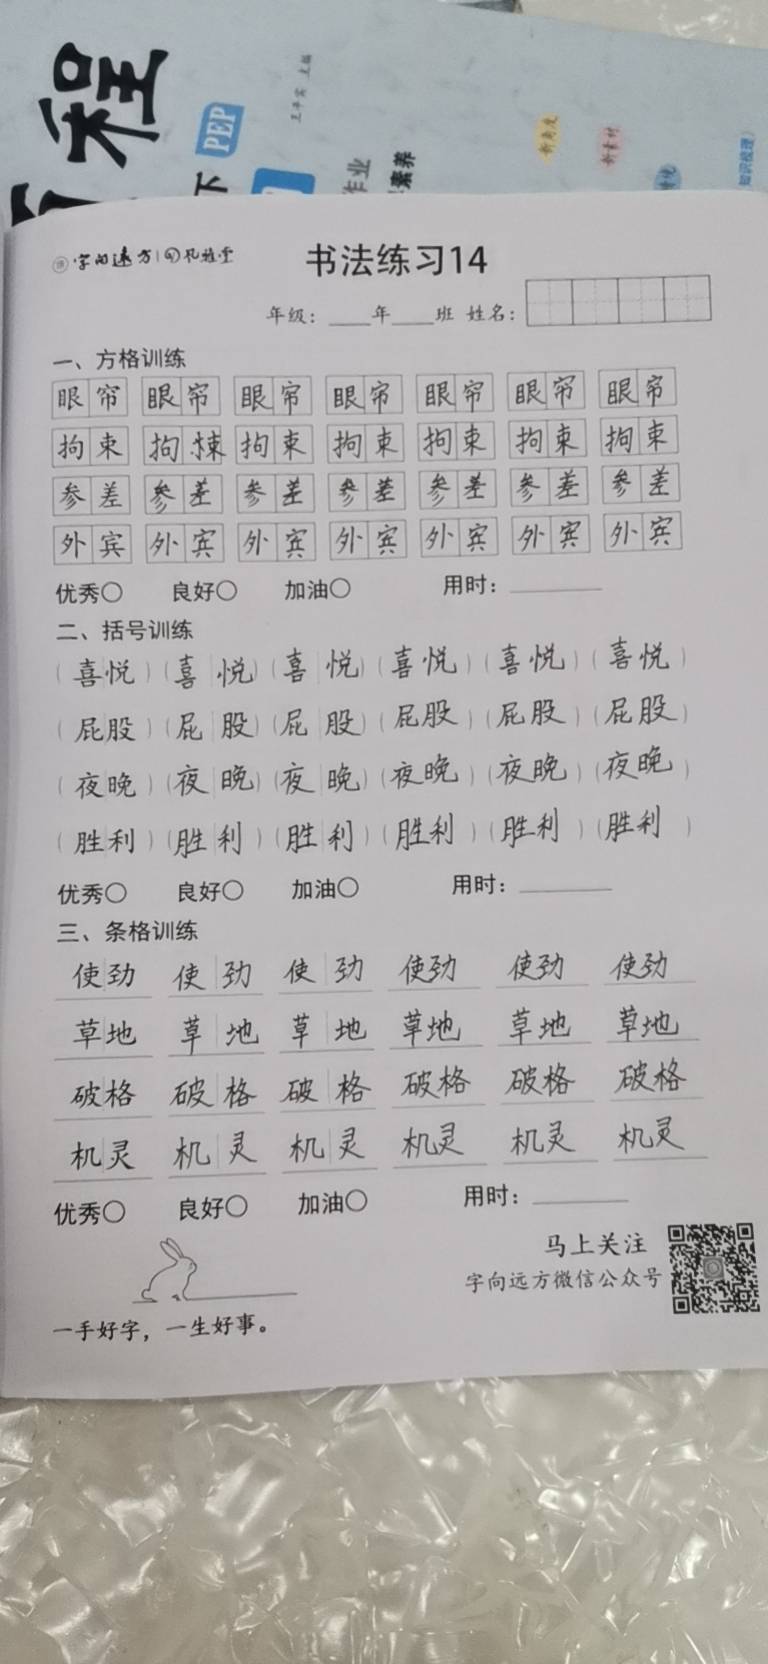 程
下 PEP
王平富 主编
作业
素养
新角度
新素材
知识梳理)
字向远方
书法练习14
年级：____年____班 姓名：
一、方格训练
眼帘 眼帘 眼帘 眼帘 眼帘 眼帘 眼帘
拘束 拘悚 拘束 拘束 拘束 拘束 拘束
参差 参差 参差 参差 参差 参差 参差
外宾 外宾 外宾 外宾 外宾 外宾 外宾
优秀○ 良好○ 加油○ 用时：________
二、括号训练
(喜悦) (喜悦) (喜悦) (喜悦) (喜悦) (喜悦)
(屁股) (屁股) (屁股) (屁股) (屁股) (屁股)
(夜晚) (夜晚) (夜晚) (夜晚) (夜晚) (夜晚)
(胜利) (胜利) (胜利) (胜利) (胜利) (胜利)
优秀○ 良好○ 加油○ 用时：________
三、条格训练
使劲 使劲 使劲 使劲 使劲 使劲
草地 草地 草地 草地 草地 草地
破格 破格 破格 破格 破格 破格
机灵 机灵 机灵 机灵 机灵 机灵
优秀○ 良好○ 加油○ 用时：________
马上关注
字向远方微信公众号
一手好字，一生好事。